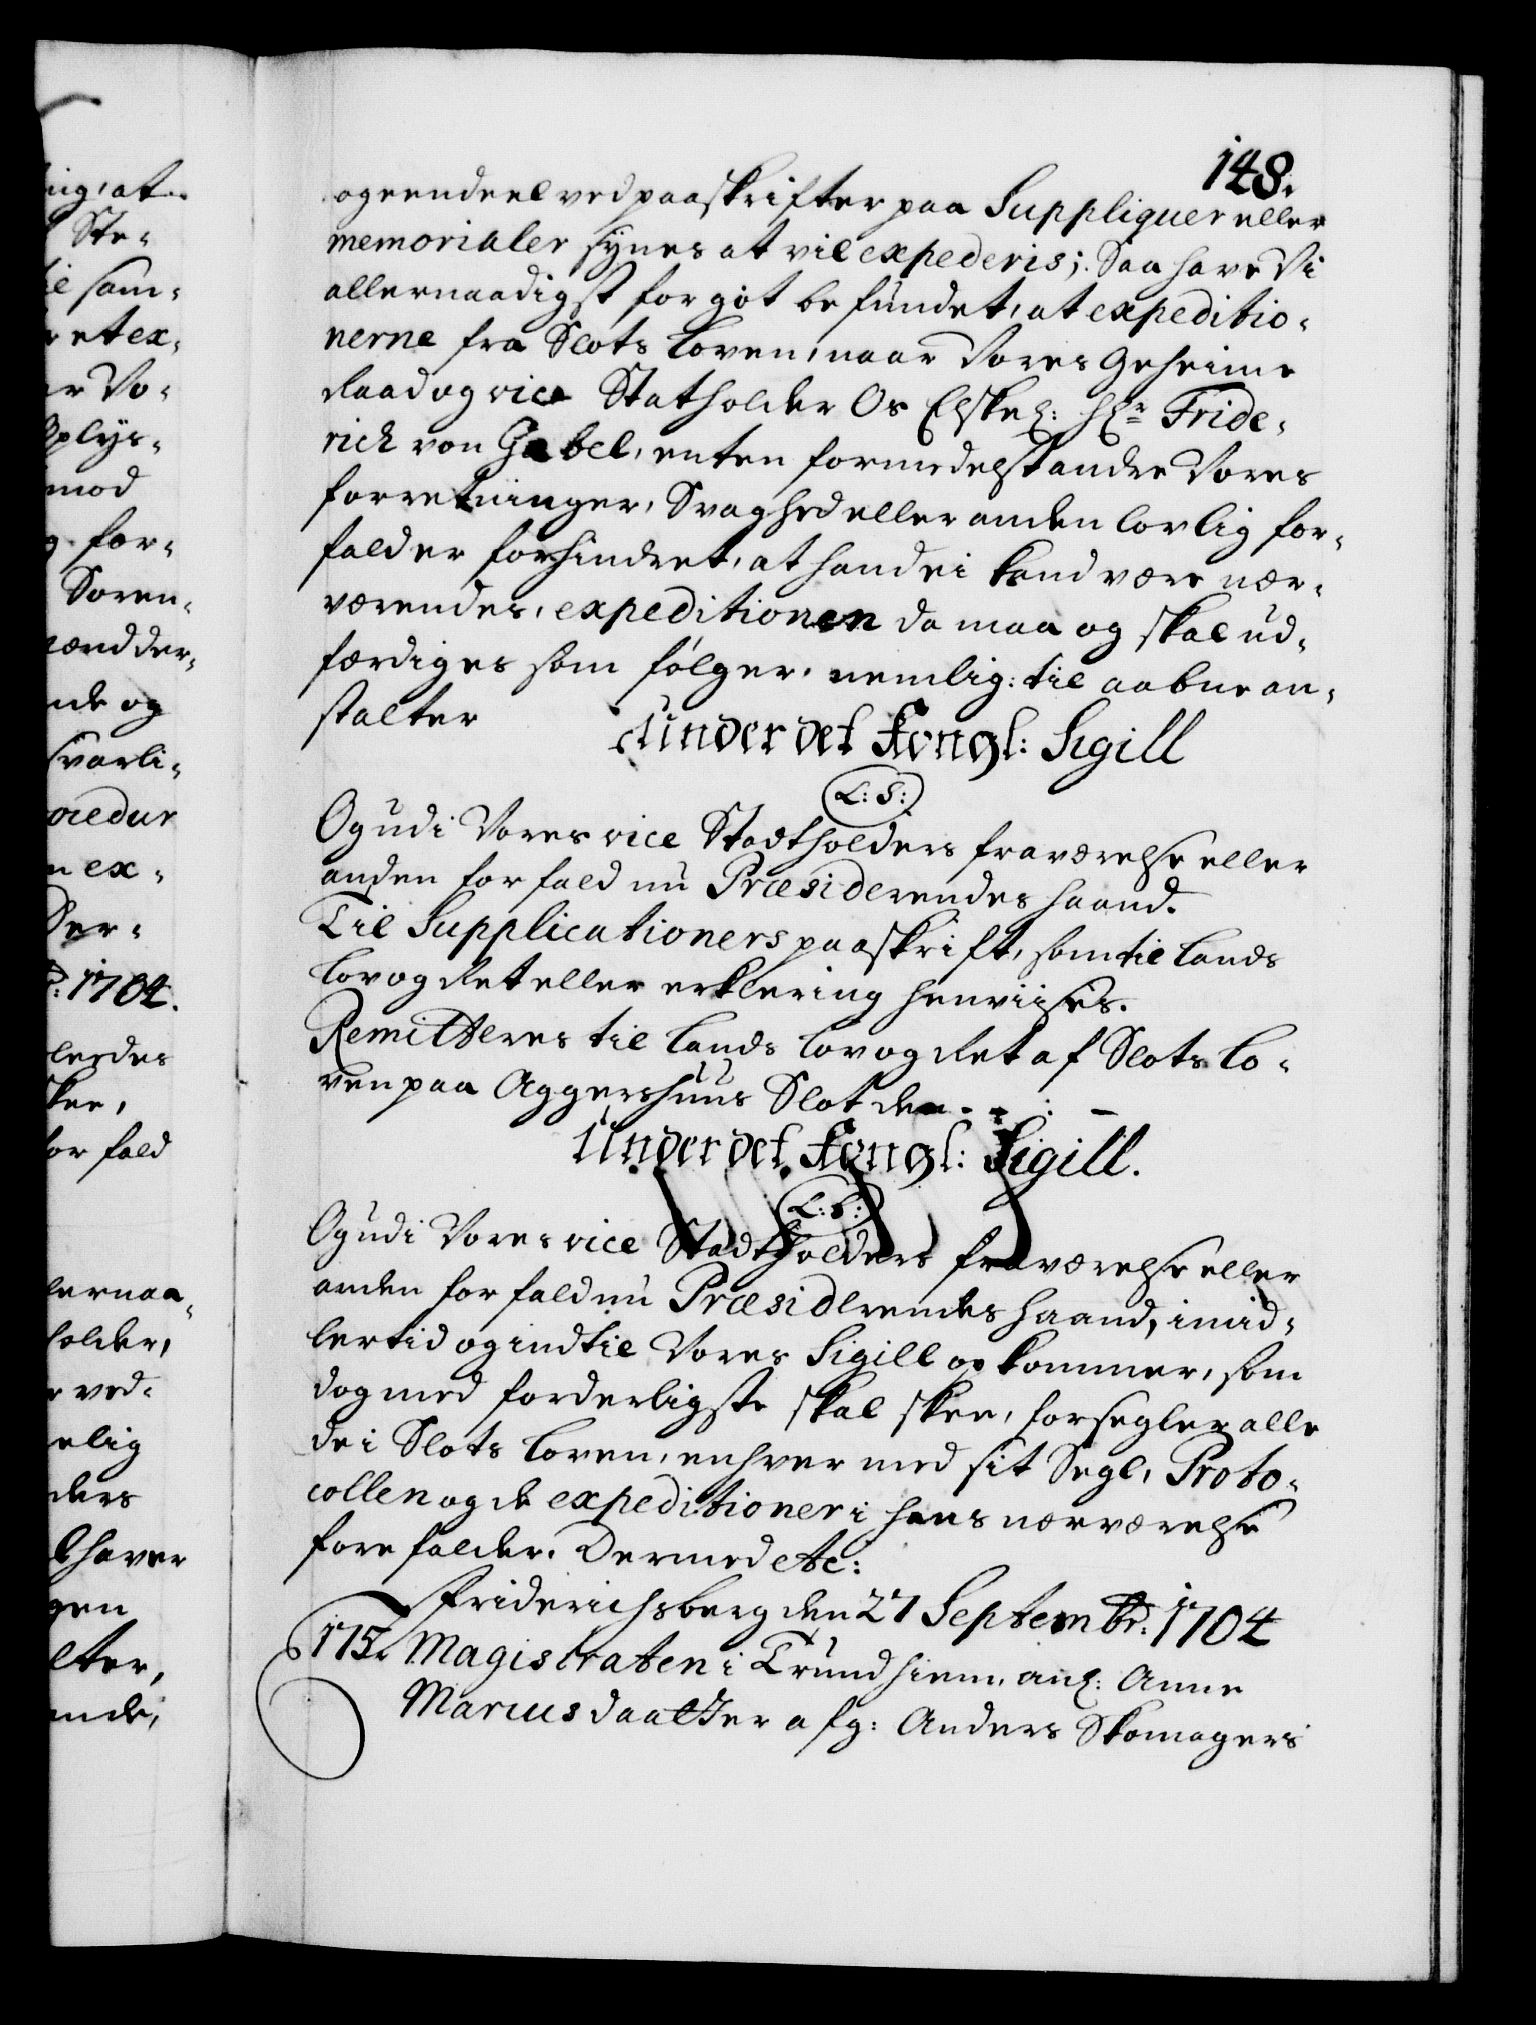 148.
og eendeel ved paaskrifter paa Suppliquer eller
memorialer synes at vil expederis; Saa have Vi
allernaadigst for got befundet, at expeditio-
nerne fra Slots Loven, naar Vores Geheime
Raad og vice Statholder Os Elskel: Hr Fride-
rich von Gabel, enten formedelst andre Vores
forretninger, Svaghed eller anden lovlig for-
fald er forhindret, at hand ei kand være nær-
værendes, expeditionen da maa og skal ud-
færdiges som følger, nemlig: til aabne an-
stalter
Under det Kongl: Sigill
L: S:
Og udi Vores vice Stadtholders fraværelse eller
anden forfald nu Præsiderendes haand.
Til Supplicationers paaskrift, som til Lands
Lov og Ret eller erklering henviises.
Remitteres til Lands Lov og Ret af Slots Lo-
ven paa Aggershuus Slot den - - : -
Under det Kongl: Sigill.
L: S:
Og udi Vores vice Stadtholders fraværelse eller
anden forfald nu Præsiderendes haand, imid-
lertid og indtil Vores Sigill op kommer, som
dog med forderligste skal skee, forsegler alle
de i Slots Loven, enhver med sit Segl, Proto-
collen og de expeditioner i hans nærværelse
forefalder. Dermed etc:
Friderichsberg den 27 Septembr: 1704
175. Magistraten i Trundhiem, anl: Anne
Mariusdaatter afg: Anders Skomagers
ing, at
Ste-
til sam-
et ex-
er Vo-
Oplys-
mod
og for-
Soren-
nde og
svarli-
n ex-
Ser-
1704.
ledes
skee,
for fald
lernaa-
holder,
ved-
elig
ders
haver
gen
lter,
ende,